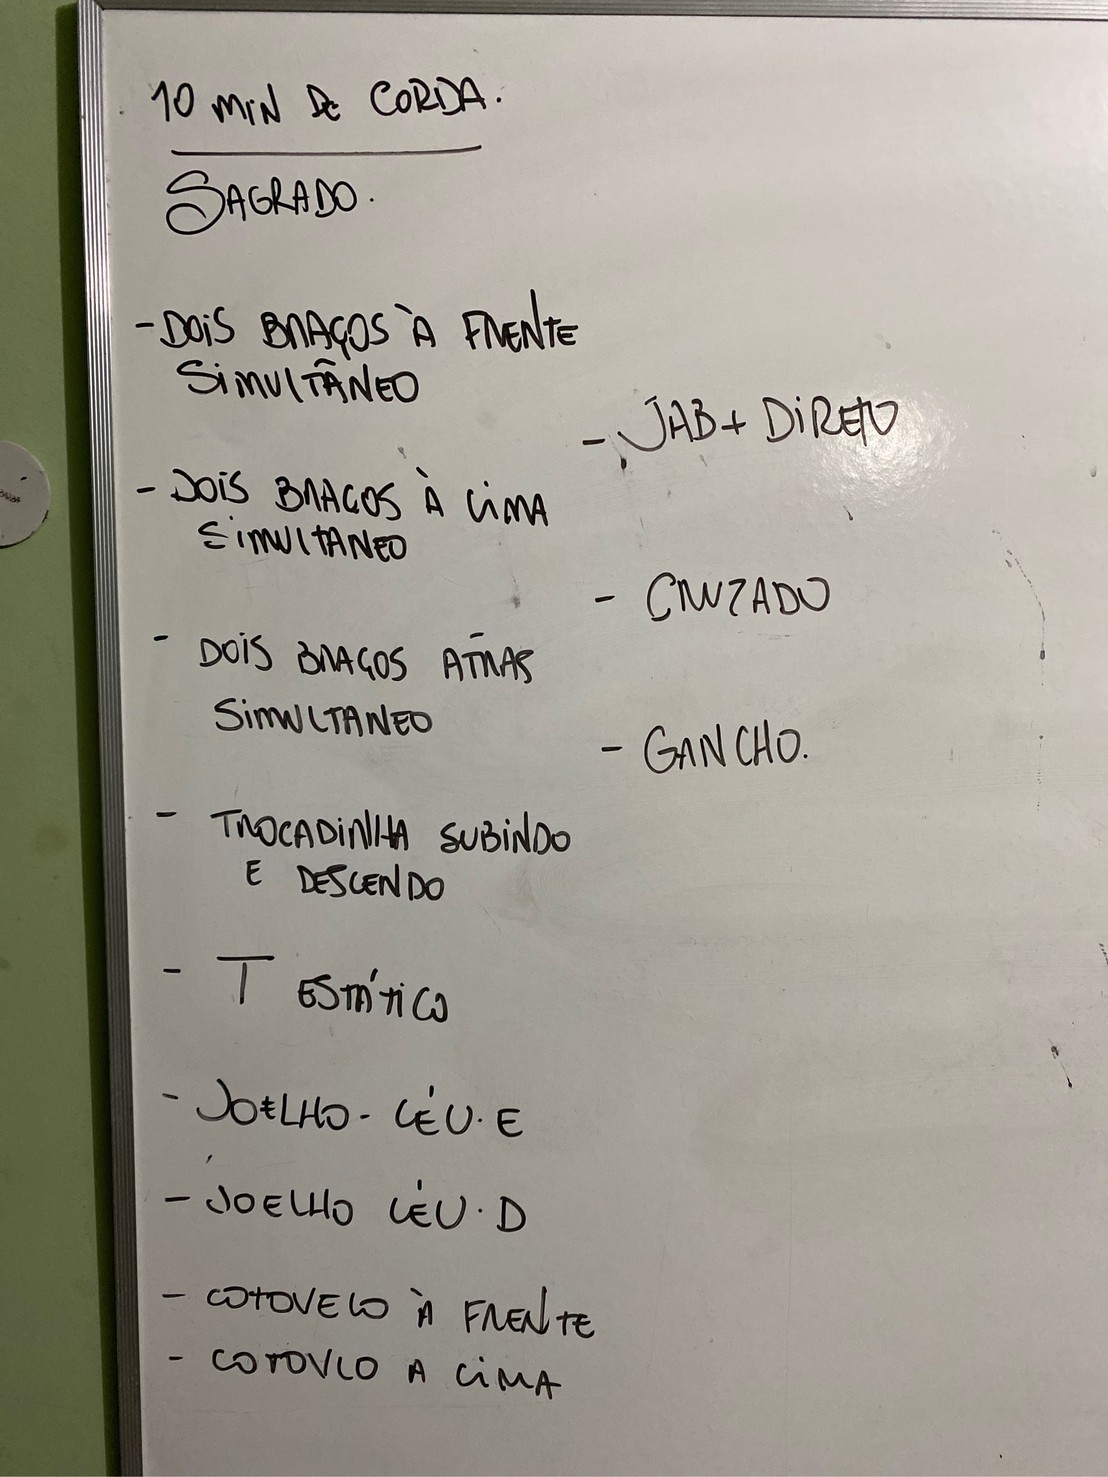 10 MIN DE CORDA.
SAGRADO.
- DOIS BRAÇOS À FRENTE
SIMULTÂNEO
- DOIS BRAÇOS À CIMA
SIMULTANEO
- DOIS BRAÇOS ATRAS
SIMULTANEO
- TROCADINHA SUBINDO
E DESCENDO
- T ESTÁTICO
- JOELHO - CÉU. E
- JOELHO CÉU. D
- COTOVELO À FRENTE
- COTOVLO A CIMA
- JAB + DIRETO
- CRUZADO
- GANCHO.